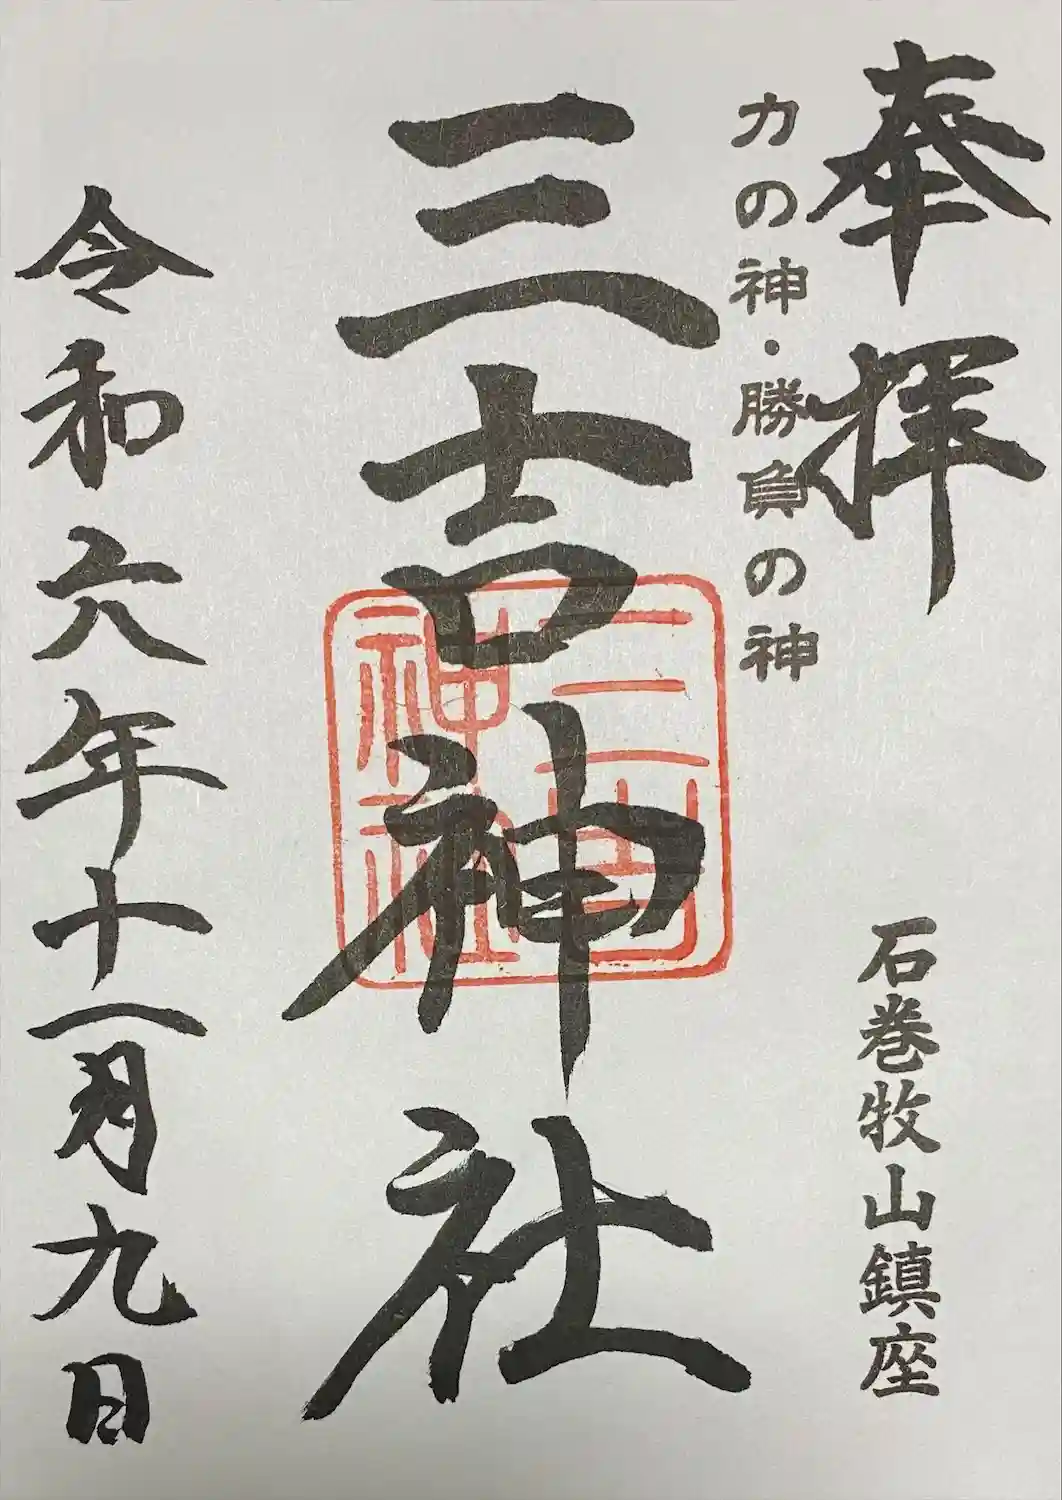 奉拝
力の神・勝負の神
石巻牧山鎮座
三吉神社
三吉神社
令和六年十一月九日